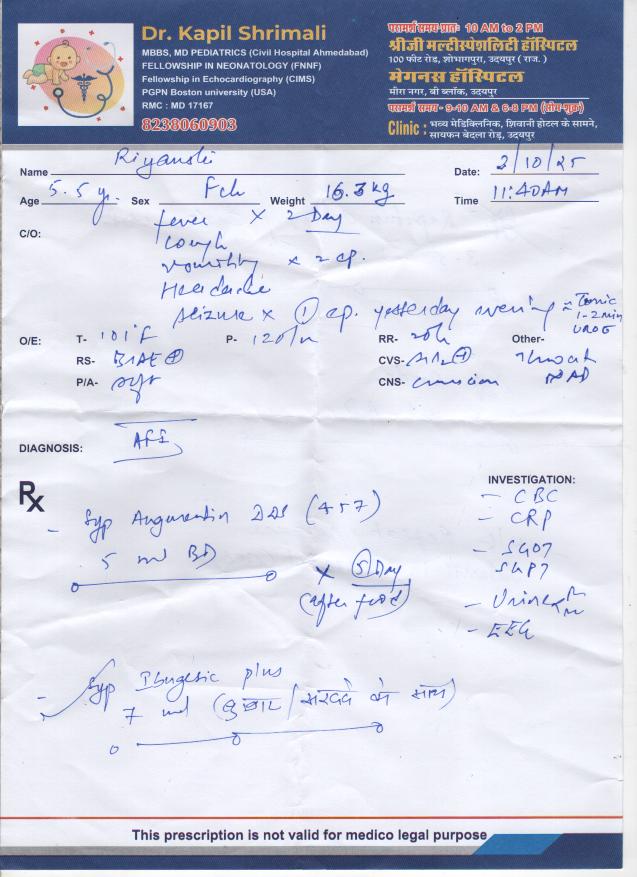 Dr. Kapil Shrimali
MBBS, MD PEDIATRICS (Civil Hospital Ahmedabad)
FELLOWSHIP IN NEONATOLOGY (FNNF)
Fellowship in Echocardiography (CIMS)
PGPN Boston university (USA)
RMC : MD 17167
8238060903
परामर्श समय-प्रातः 10 AM to 2 PM
श्रीजी मल्टीस्पेशलिटी हॉस्पिटल
100 फीट रोड, शोभागपुरा, उदयपुर ( राज. )
मेगनस हॉस्पिटल
मीरा नगर, बी ब्लॉक, उदयपुर
परामर्श समय - 9-10 AM & 6-8 PM (सोम-शुक्र)
Clinic : भव्य मेडिक्लिनिक, शिवानी होटल के सामने,
सायफन बेदला रोड़, उदयपुर
Name Riyanshi Date: 2/10/25
Age 5.5 yr. Sex Fch Weight 16.3 kg Time 11:40AM
C/O: fever x 2 Day
cough
vomiting x 2 ep.
Headache
seizure x 1 ep. yesterday evening = Tonic
1-2 min
UROE
O/E: T- 101°F P- 120/m RR- 20/m Other- Throat
RS- BLAE + CVS- S1S2 + NAD
P/A- soft CNS- conscious
DIAGNOSIS: AFI
Rx
INVESTIGATION:
- CBC
- CRP
- SGOT
SGPT
- Urine R/M
- EEG
- Syp Augmentin DDS (457)
5 ml BD
x 5 Day
(after food)
- Syp Ibugesic plus
7 ml (बुखार / सरदर्द के साथ)
This prescription is not valid for medico legal purpose